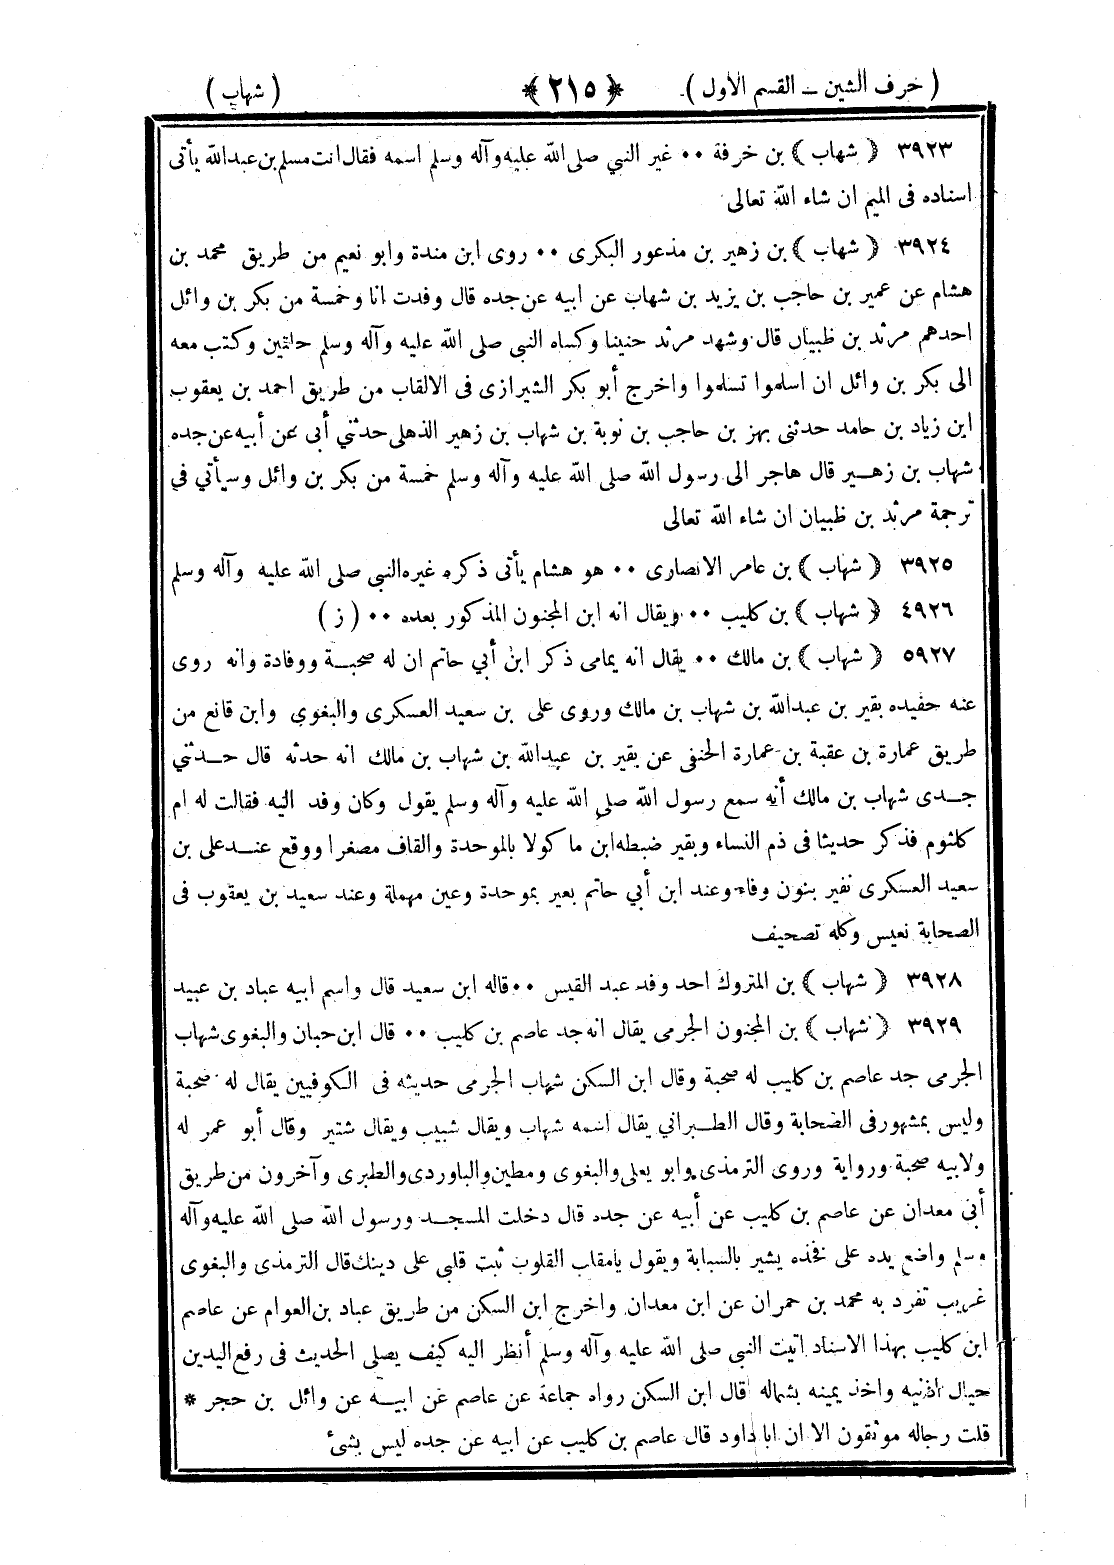 ( حرف الشين – القسم الاول ) ﴿ ٢١٥ ﴾ ( شهاب )
٣٩٢٣ ﴿ شهاب ﴾ بن خرفة ٠٠ غير النبي صلى الله عليه وآله وسلم اسمه فقال انت مسلم بن عبدالله يأتى
اسناده فى الميم ان شاء الله تعالى
٣٩٢٤ ﴿ شهاب ﴾ بن زهير بن مذعور البكرى ٠٠ روى ابن مندة وابو نعيم من طريق محمد بن
هشام عن عمير بن حاجب بن يزيد بن شهاب عن ابيه عن جده قال وفدت انا وخمسة من بكر بن وائل
احدهم مرثد بن ظبيان قال وشهد مرثد حنينا وكساه النبى صلى الله عليه وآله وسلم حلتين وكتب معه
الى بكر بن وائل ان اسلموا تسلموا واخرج أبو بكر الشيرازى فى الالقاب من طريق احمد بن يعقوب
ابن زياد بن حامد حدثنى بهز بن حاجب بن نوبة بن شهاب بن زهير الذهلى حدثني أبى عن أبيه عن جده
شهاب بن زهير قال هاجر الى رسول الله صلى الله عليه وآله وسلم خمسة من بكر بن وائل وسيأتي في
ترجمة مرثد بن ظبيان ان شاء الله تعالى
٣٩٢٥ ﴿ شهاب ﴾ بن عامر الانصارى ٠٠ هو هشام يأتى ذكره غيره النبي صلى الله عليه وآله وسلم
٤٩٢٦ ﴿ شهاب ﴾ بن كليب ٠٠ ويقال انه ابن المجنون المذكور بعده ٠٠ ( ز )
٥٩٢٧ ﴿ شهاب ﴾ بن مالك ٠٠ يقال انه يمامى ذكر ابن أبي حاتم ان له صحبة ووفادة وانه روى
عنه حفيده بقير بن عبدالله بن شهاب بن مالك وروى على بن سعيد العسكرى والبغوي وابن قانع من
طريق عمارة بن عقبة بن عمارة الحنفى عن بقير بن عبدالله بن شهاب بن مالك انه حدثه قال حدثني
جدى شهاب بن مالك أنه سمع رسول الله صلى الله عليه وآله وسلم يقول وكان وفد اليه فقالت له ام
كلثوم فذكر حديثا فى ذم النساء وبقير ضبطه ابن ماكولا بالموحدة والقاف مصغرا ووقع عند على بن
سعيد العسكرى نفير بنون وفاء وعند ابن أبي حاتم بعير بموحدة وعين مهملة وعند سعيد بن يعقوب فى
الصحابة نعيس وكله تصحيف
٣٩٢٨ ﴿ شهاب ﴾ بن المتروك احد وفد عبد القيس ٠٠ قاله ابن سعيد قال واسم ابيه عباد بن عبيد
٣٩٢٩ ﴿ شهاب ﴾ بن المجنون الجرمى يقال انه جد عاصم بن كليب ٠٠ قال ابن حبان والبغوى شهاب
الجرمى جد عاصم بن كليب له صحبة وقال ابن السكن شهاب الجرمى حديثه فى الكوفيين يقال له صحبة
وليس بمشهور فى الصحابة وقال الطبراني يقال اسمه شهاب ويقال شبيب ويقال شتير وقال أبو عمر له
ولابيه صحبة ورواية وروى الترمذى وابو يعلى والبغوى ومطين والباوردى والطبرى وآخرون من طريق
أبى معدان عن عاصم بن كليب عن أبيه عن جده قال دخلت المسجد ورسول الله صلى الله عليه وآله
وسلم واضع يده على فخذه يشير بالسبابة ويقول يامقلب القلوب ثبت قلبى على دينك قال الترمذى والبغوى
غريب تفرد به محمد بن حمران عن ابن معدان واخرج ابن السكن من طريق عباد بن العوام عن عاصم
ابن كليب بهذا الاسناد اتيت النبى صلى الله عليه وآله وسلم أنظر اليه كيف يصلى الحديث فى رفع اليدين
حيال اذنيه واخذ يمينه بشماله قال ابن السكن رواه جماعة عن عاصم عن ابيه عن وائل بن حجر *
قلت رجاله موثقون الا ان ابا داود قال عاصم بن كليب عن ابيه عن جده ليس بشئ